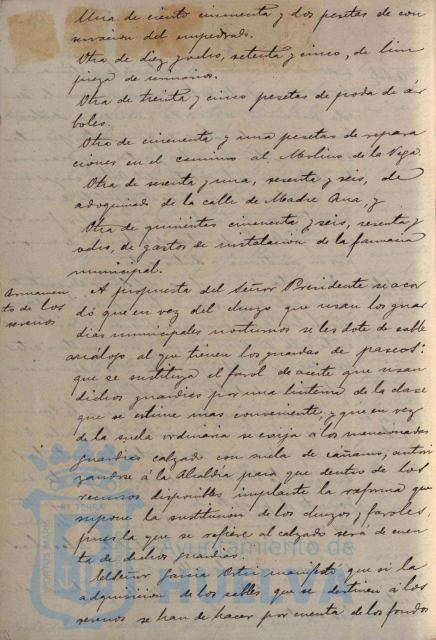 Una de ciento cincuenta y dos pesetas de con
servacion del empedrado.
Otra de diez y ocho, setenta y cinco, de lim
pieza de sumideros.
Otra de treinta y cinco pesetas de poda de ár
boles.
Otra de cincuenta y una pesetas de repara
ciones en el camino al Molino de la Vega.
Otra de sesenta y una, sesenta y seis, de
adoquinado de la calle de Madre Ana, y
Otra de quinientas cincuenta y seis, sesenta y
ocho, de gastos de instalacion de la farmacia
municipal.
Armamen
to de los
serenos
A propuesta del Señor Presidente se acor
dó que en vez del chuzo que usan los guar
dias municipales nocturnos se les dote de sable
análogo al que tienen los guardas de paseos:
que se sustituya el farol de aceite que usan
dichos guardias por una linterna de la clase
que se estime mas conveniente, y que en vez
de la suela ordinaria se exija á los mencionados
guardias calzado con suela de cáñamo, autori
zandose á la Alcaldia para que dentro de los
recursos disponibles implante la reforma que
supone la sustitucion de los chuzos y faroles,
pues la que se refiere al calzado será de cuen
ta de dichos guardias.
El Señor Garcia Ortiz manifestó que si la
adquisicion de los sables que se destinen á los
serenos se han de hacer por cuenta de los fondos
Ayuntamiento de
HUELVA